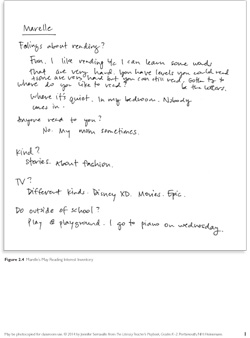 Marelle
Feelings about reading?
Fun. I like reading b/c I can learn some words
that are very hard. You have levels you could read
some are very hard but you can still read,
where do you like to read? be the letters.
Where it's quiet. In my bedroom. Nobody
comes in.
Anyone read to you?
No. My mom sometimes.
Kind?
Stories. About fashion.
TV?
Different kinds. Disney XD. Movies. Epic.
Do outside of school?
Play @ playground. I go to piano on wednesday.
Figure 2.4 Marelle's Play Reading Interest Inventory
May be photocopied for classroom use. © 2014 by Jennifer Serravallo from The Literacy Teacher's Playbook, Grades K–2. Portsmouth, NH: Heinemann.